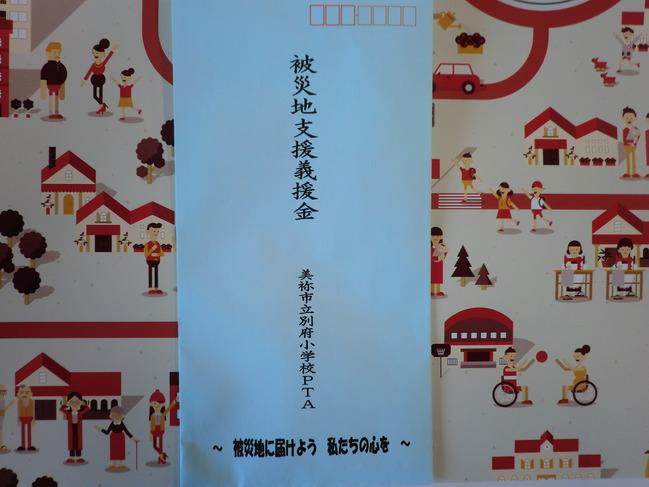 被災地支援義援金
美祢市立別府小学校PTA
～ 被災地に届けよう 私たちの心を ～